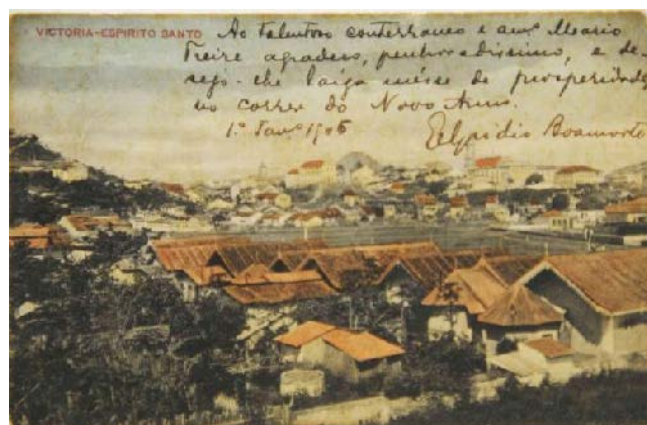 VICTORIA-ESPIRITO SANTO
Ao talentoso conterraneo e amº Mario
Freire agradeço, penhoradissimo, e de-
sejo-lhe larga mésse de prosperidades
no correr do Novo Anno.
1º Janº 1906
Elpidio Boamorte